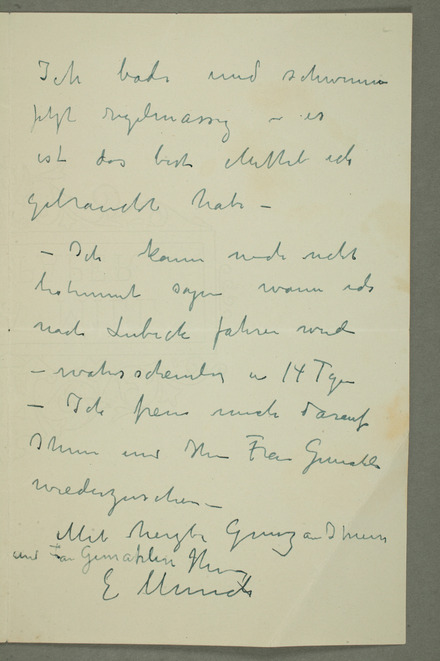 Ich bade und schwimme
jetzt regelmässig – es
ist das beste Mittel ich
gebraucht habe –
– Ich kann noch nicht
bestimmt sagen wann ich
nach Lubeck fahren werde
– wahrscheinlich in 14 Tagen
– Ich freue mich darauf
Ihnen und Ihre Frau Gemahlin
wiederzusehen –
Mit herzl Gruss an Ihnen
und Frau Gemahlin Ihr
E Munch